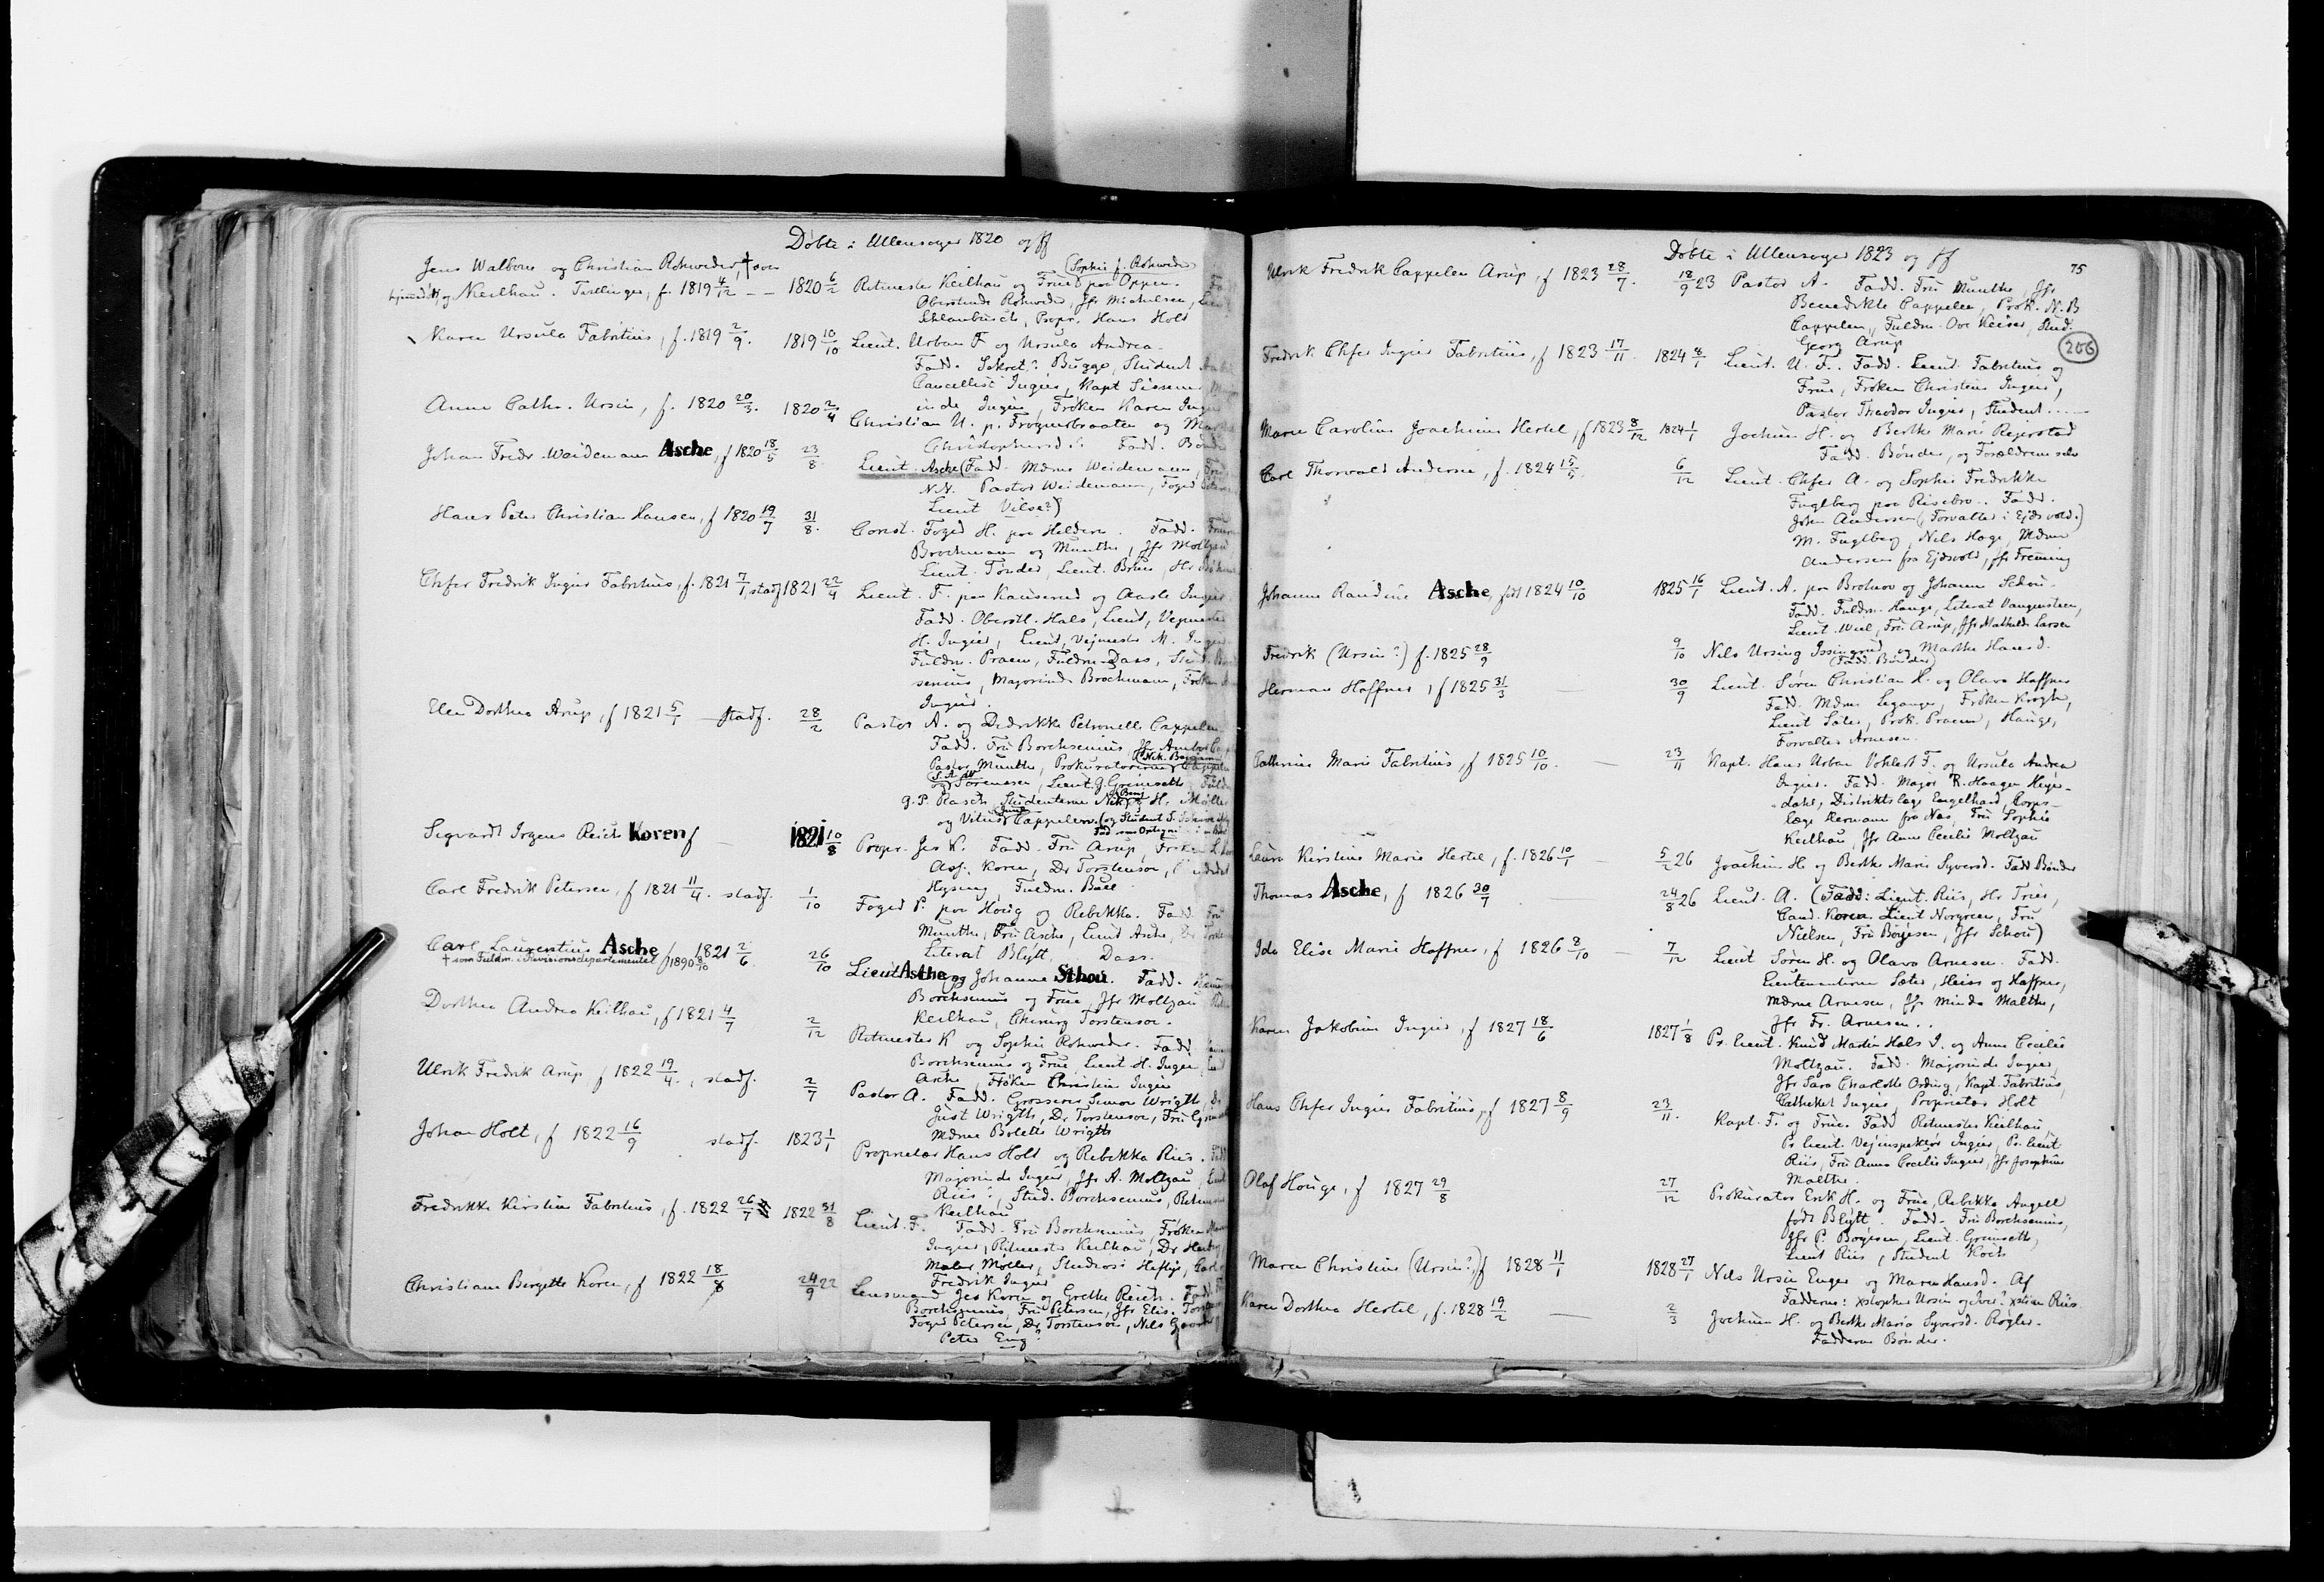 Døbte i Ullensager 1820 og ff
Jens Walborn og Christian Rohweder, † over
og Keilhau. Tvillinger, f. 1819 4/12 — — 1820 6/2 Ritmester Keilhau og Frue paa Oppen. (Sophie f. Rohweder
Oberstinde Rohweder, Jfr Michelsen,
Schlanbusch, Propr. Hans Holt
Karen Ursula Fabritius, f. 1819 2/9. 1819 10/10 Lieut. Urban F og Ursula Andrea
Fadd. Sekret. Bugge, Student
Cancellist Ingier, Kapt Sissener,
inde Ingier, Frøken Karen Inger
Anne Cathr. Ursin, f. 1820 20/3. 1820 2/4 Christian U. p. Frognerbraaten og
Christophersd. Fadd. Bønder
Johan Fredr. Weidemann Asche, f 1820 18/5 23/8. Lieut. Asche (Fadd. Mdme Weidemann,
N.N. Pastor Weidemann, Foged
Lieut Vilse?)
Hans Peter Christian Hansen, f 1820 19/7 31/8. Const. Foged H. paa Heldern. Fadd.
Brochmann og Munthe, Jfr Moltzau
Lieut. Tønder, Lieut. Bruu,
Chfer Fredrik Ingier Fabritius, f. 1821 7/1, stadf 1821 22/4 Lieut. F. paa Kauserud og Aasle Ingier
Fadd. Oberstl. Hals, Lieut, Vejmester
H. Ingier, Lieut, Vejmester M. Ingier
Fuldm. Praem, Fuldm. Dass,
senius, Majorinde Brochmann, Frøken
Ingier.
Elen Dorthea Arup, f 1821 5/1 — stadf. 28/2 Pastor A. og Didrikke Petronelle Cappelen
Fadd. Fru Borchsenius
Pastor Munthe, Prokuratorerne Cappelen
og Sørensen, Lieut. J. Grimseth,
G. P. Rasch, Studenterne Nik. H. Møller
og Vitus Cappelen. (og Student
Segvardt Irgens Reich Koren f — 1821 10/8 Propr. Jes K. Fadd. Fru Arup, Frøken
Ass. Koren, Dr Torstenson,
Hysing, Fuldm. Bull
Carl Fredrik Petersen, f 1821 11/4. stadf. 1/10 Foged P. paa Houg og Rebekka. Fadd. Fru
Munthe, Fru Asche, Lieut Asche,
Literat Blÿtt, Dass.
Carl Laurentius Asche f 1821 2/6. 26/10 Lieut Asche og Johanne Schou. Fadd.
† som Fuldm. i Revisionsdepartementet 1890 8/10
Borchsenius og Frue, Jfr Moltzau
Keilhau, Chirurg Torstensor.
Dorthea Andrea Keilhau, f 1821 4/7 2/12 Ritmester K og Sophie Rohweder. Fadd.
Borchsenius og Frue, Lieut H. Ingier,
Asche, Frøken Christine Ingier
Ulrik Fredrik Arup f 1822 19/4., stadf. 2/7 Pastor A. Fadd. Grosserer Simon Wrigth,
Just Wrigth, Dr Torstenson, Fru
Mdme Bolette Wrigth
Johan Holt, f 1822 16/9 stadf. 1823 1/1 Proprietær Hans Holt og Rebekka Riis.
Majorinde Ingier, Jfr A. Moltzau,
Riis, Stud. Borchsenius, Ritmester
Keilhau
Fredrikke Kirstine Fabritius, f. 1822 26/7 1822 31/8 Lieut. F. Fadd. Fru Borchsenius, Frøken
Ingier, Ritmester Keilhau, Dr
Maler Møller, Studiosi Heftÿe,
Fredrik Ingier
Christiane Birgitte Koren, f 1822 18/8 24/9 22 Lensmand Jes Koren og Grethe Reich. Fadd.
Borchsenius, Fru Petersen, Jfr Elis.
Foged Petersen, Dr Torstenson, Nils
Peter Eng?
Døbte i Ullensager 1823 og ff
75
206
Ulrik Fredrik Cappelen Arup, f 1823 28/7. 18/9 23 Pastor A. Fadd. Fru Munthe, Jfr
Benedikte Cappelen, Prok. N. B
Cappelen, Fuldm. Ove Keiser, Stud.
Georg Arup
Fredrik Chfer Ingier Fabritius, f 1823 17/11. 1824 4/1 Lieut. U. F. Fadd. Lieut. Fabritius og
Frue, Frøken Christine Ingier,
Pastor Theodor Ingier, Student ....
Maren Caroline Joachime Hertel, f 1823 8/12 1824 1/1 Jochum H. og Berthe Marie Rejerstad
Fadd. Bønder, og Forældrene selv
Carl Thorvald Andersen, f. 1824 15/5. 6/12 Lieut. Chfer A. og Sophie Fredrikke
Fuglberg paa Risebro. Fadd.
John Andersen (Forvalter i Ejdsvold.)
M. Fuglberg, Nils Hage, Mdme
Andersen fra Ejdsvold, Jfr Freming
Johanne Randine Asche, født 1824 10/10 1825 16/1 Lieut. A. paa Brotnov og Johanne Schou.
Fadd. Fuldm. Hauge, Literat Vangensteen,
Lieut. Wiel, Fru Arup, Jfr Mathilde Larsen
Fredrik (Ursin?) f. 1825 28/9 9/10 Nils Ursing Issingrud og Marthe Hansd.
(Fadd. Bønder)
Herman Haffner, f 1825 31/3 — 30/9 Lieut. Søren Christian H. og Olava Haffner
Fadd. Mdme Leganger, Frøken Krogh,
Lieut Sater, Prok. Praem, Hauge,
Forvalter Arnesen.
Cathrine Marie Fabritius, f 1825 10/10. — 23/11 Kapt. Hans Urban Vohlert F. og Ursula Andrea
Ingier. Fadd. Major R. Haagen Heyer-
dahl, Distriktslæge Engelhard, Corps-
læge Hermann fra Næs, Fru Sophie
Keilhau, Jfr Anne Cecilie Moltzau
Laura Kirstine Marie Hertel, f. 1826 10/1 — 5/2 26 Joachim H. og Berthe Marie Syversd. Fadd Bønder
Thomas Asche, f 1826 30/7 — 24/8 26 Lieut. A. (Fadd: Lieut. Riis, Hr Tries,
Cand. Koren. Lieut Norgreen, Fru
Nielsen, Fru Børgesen, Jfr Schou)
Ida Elise Marie Haffner, f 1826 8/10 — 7/12 Lieut Søren H. og Olava Arnesen. Fadd.
Lieutenanterne Sæter, Heiss og Haffner,
Mdme Arnesen, Jfr Minda Malthe,
Jfr Fr. Arnesen..
Karen Jakobine Ingier, f 1827 18/6 1827 1/8 Pr. Lieut. Knud Martin Hals I. og Anne Cecilie
Moltzau. Fadd. Majorinde Ingier,
Jfr Sara Charlotte Ording, Kapt. Fabritius,
Catheket Ingier, Proprietær Holt
Hans Chfer Ingier Fabritius, f 1827 8/9 23/11. Kapt. F. og Frue. Fadd Ritmester Keilhau,
Pr Lieut. Vejinspektør Ingier, Pr. Lieut
Riis, Fru Anne Cecilie Ingier, Jfr Josephine
Malthe.
Olaf Houge, f 1827 29/8 27/12 Prokurator Erik H. og Frue, Rebekka Angell
født Blÿtt. Fadd. Fru Borchsenius,
Jfr P. Børgesen, Lieut. Grimseth,
Lieut Riis, Student Koch
Maren Christine (Ursin?), f 1828 11/1 1828 27/1 Nils Ursin Enger og Maren Hansd. Af
Fadderne: Xstopher Ursin og Iver? Xstian Riis.
Karen Dorthea Hertel, f. 1828 19/2 — 2/3 Jochum H. og Berthe Maria Syversd. Røgler.
Fadderne Bønder.